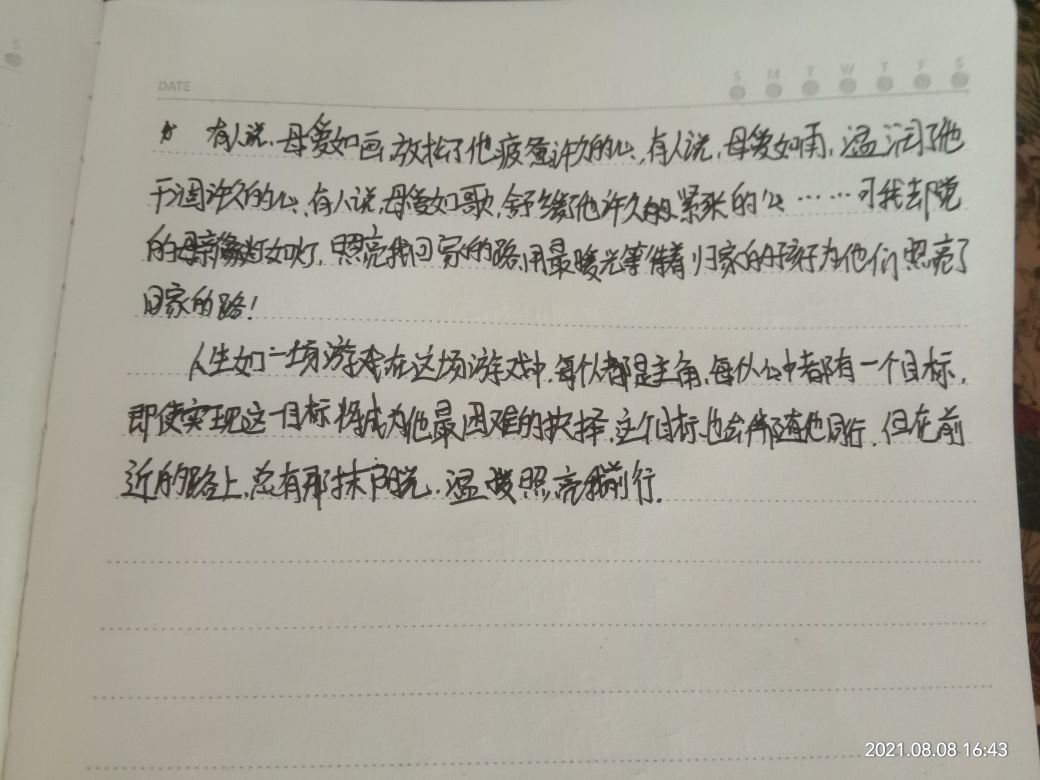 S
DATE
S M T W T F S
有人说,母爱如画,放松了他疲惫许久的心,有人说,母爱如雨,温润了他
干涸许久的心,有人说,母爱如歌,舒缓了他许久的紧张的心……可我却觉
的母亲如灯,照亮我回家的路,用最暖光等待着归家的好孩子为他们照亮了
回家的路!
人生如一场游戏,在这场游戏中,每个人都是主角,每个人心中都有一个目标,
即使实现这一目标将成为他最困难的抉择,这个目标也会伴随他同行,但在前
近的路上,总有那抹阳光,温暖照亮我前行.
2021.08.08 16:43